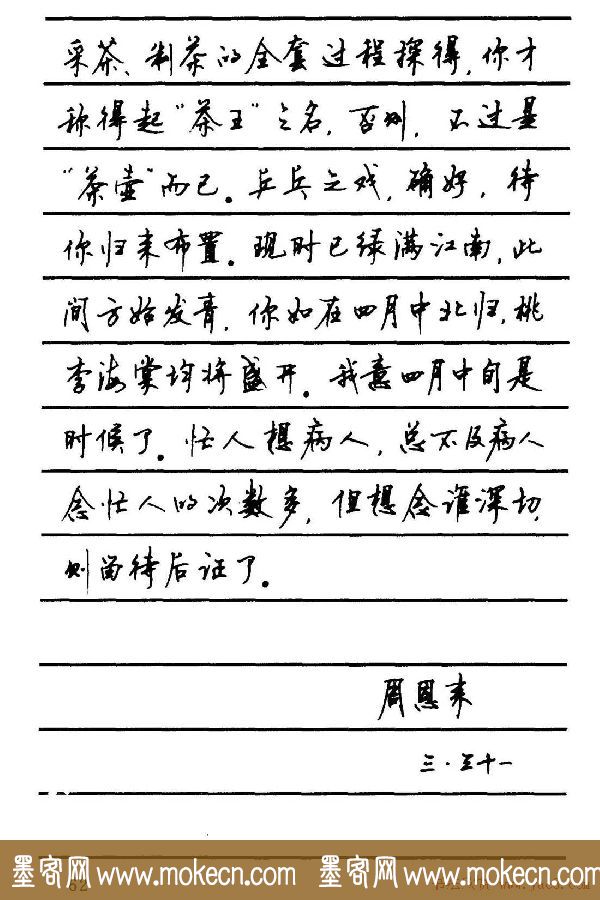 采茶、制茶的全套过程探得，你才
称得起“茶王”之名，否则，不过是
“茶壶”而已。乒乓之戏，确好，待
你归来布置。现时已绿满江南，此
间方始发青，你如在四月中北归，桃
李海棠均将盛开。我意四月中旬是
时候了。忙人想病人，总不及病人
念忙人的次数多，但想念谁深切，
则留待后证了。
周恩来
三·三十一
墨客网 www.mokecn.com 墨客网 www.mokecn.com
62